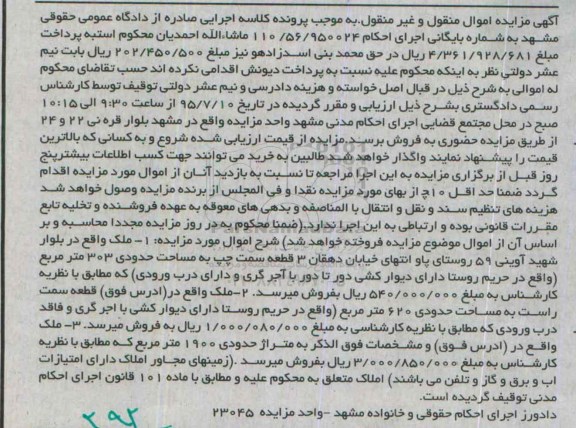 آگهی مزایده اموال منقول و غیر منقول.به موجب پرونده کلاسه اجرایی صادره از دادگاه عمومی حقوقی
مشهد به شماره بایگانی اجرای احکام ۱۱۰/۵۶/۹۵۰۰۲۴ ماشاءالله احمدیان محکوم استبه پرداخت
مبلغ ۴/۳۶۱/۹۲۸/۶۸۱ ریال در حق محمد بنی اسدزادهو نیز مبلغ ۲۰۲/۴۵۰/۵۰۰ ریال بابت نیم
عشر دولتی نظر به اینکه محکوم علیه نسبت به پرداخت دیونش اقدامی نکرده اند حسب تقاضای محکوم
له اموالی به شرح ذیل در قبال اصل خواسته و هزینه دادرسی و نیم عشر دولتی توقیف توسط کارشناس
رسمی دادگستری بشرح ذیل ارزیابی و مقرر گردیده در تاریخ ۹۵/۷/۱۰ از ساعت ۹:۳۰ الی ۱۰:۱۵
صبح در محل مجتمع قضایی اجرای احکام مدنی مشهد واحد مزایده واقع در مشهد بلوار قره نی ۲۲ و ۲۴
از طریق مزایده حضوری به فروش برسد.مزایده از قیمت ارزیابی شده شروع و به کسانی که بالاترین
قیمت را پیشنهاد نمایند واگذار خواهد شد. طالبین به خرید می توانند جهت کسب اطلاعات بیشترپنج
روز قبل از برگزاری مزایده به این اجرا مراجعه تا نسبت به بازدید آنان از اموال مورد مزایده اقدام
گردد ضمنا حد اقل ۱۰٪ از بهای مورد مزایده نقدا و فی المجلس از برنده مزایده وصول خواهد شد
هزینه های تنظیم سند و نقل و انتقال با المناصفه و بدهی های معوقه به عهده فروشنده و تخلیه تابع
مقررات قانونی بوده و ارتباطی به این اجرا ندارد (ضمنا محکوم به در روز مزایده مجددا محاسبه و بر
اساس آن از اموال موضوع مزایده فروخته خواهد شد) شرح اموال مورد مزایده: ۱- ملک واقع در بلوار
شهید آوینی ۵۹ روستای پاو انتهای خیابان دهقان ۳ قطعه سمت چپ به مساحت حدودی ۳۰۳ متر مربع
(واقع در حریم روستا دارای دیوار کشی دور تا دور با آجر گری و دارای درب ورودی) که مطابق با نظریه
کارشناس به مبلغ ۵۴۰/۰۰۰/۰۰۰ ریال بفروش میرسد. ۲-ملک واقع در(ادرس فوق) قطعه سمت
راست به مساحت حدودی ۶۲۰ متر مربع (واقع در حریم روستا دارای دیوار کشی با اجر گری و فاقد
درب ورودی که مطابق با نظریه کارشناسی به مبلغ ۱/۰۰۰/۰۸۰/۰۰۰ ریال به فروش میرسد. ۳- ملک
واقع در (ادرس فوق) و مشخصات فوق الذکر به متراژ حدودی ۱۹۰۰ متر مربع که مطابق با نظریه
کارشناس به مبلغ ۳/۰۰۰/۸۵۰/۰۰۰ ریال بفروش میرسد .(زمینهای مجاور املاک دارای امتیازات
اب و برق و گاز و تلفن می باشند) املاک متعلق به محکوم علیه و مطابق با ماده ۱۰۱ قانون اجرای احکام
مدنی توقیف گردیده است.
دادورز اجرای احکام حقوقی و خانواده مشهد -واحد مزایده ۲۳۰۴۵
۲۹۲